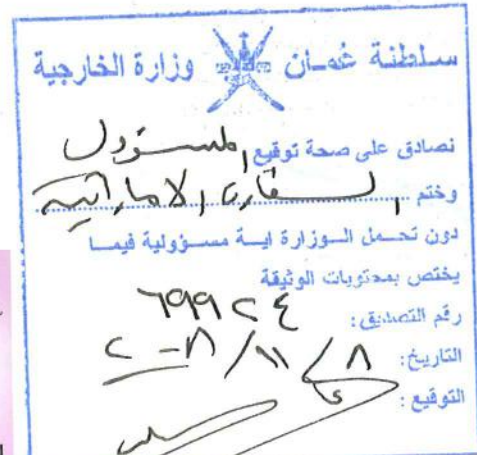 سلطنة عُمان وزارة الخارجية
نصادق على صحة توقيع المسؤول
وختم السفارة الاماراتية
دون تحمل الوزارة اية مسؤولية فيما
يختص بمحتويات الوثيقة
رقم التصديق: ٦٩٩٢٤
التاريخ: ٨/١١/٢٠٠٨
التوقيع: